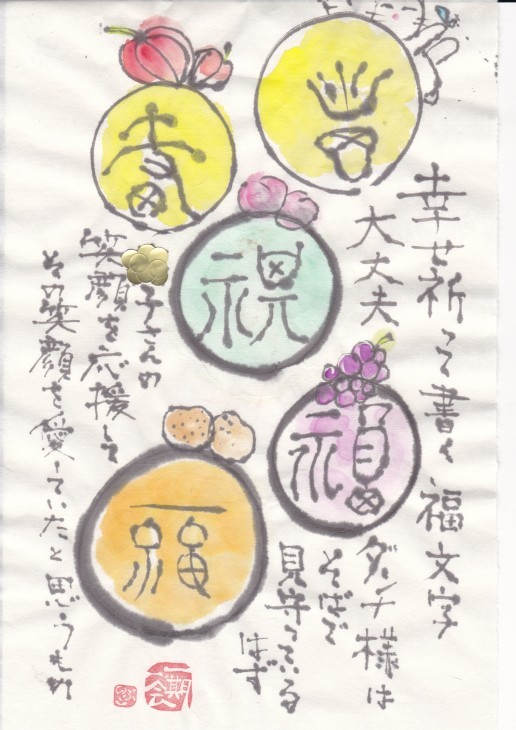 幸せ祈って書く福文字
大丈夫
ダンナ様は
そばで
見守っている
はず
子さんの
笑顔を応援して
その笑顔を愛していたと思うもの
福
一期一会